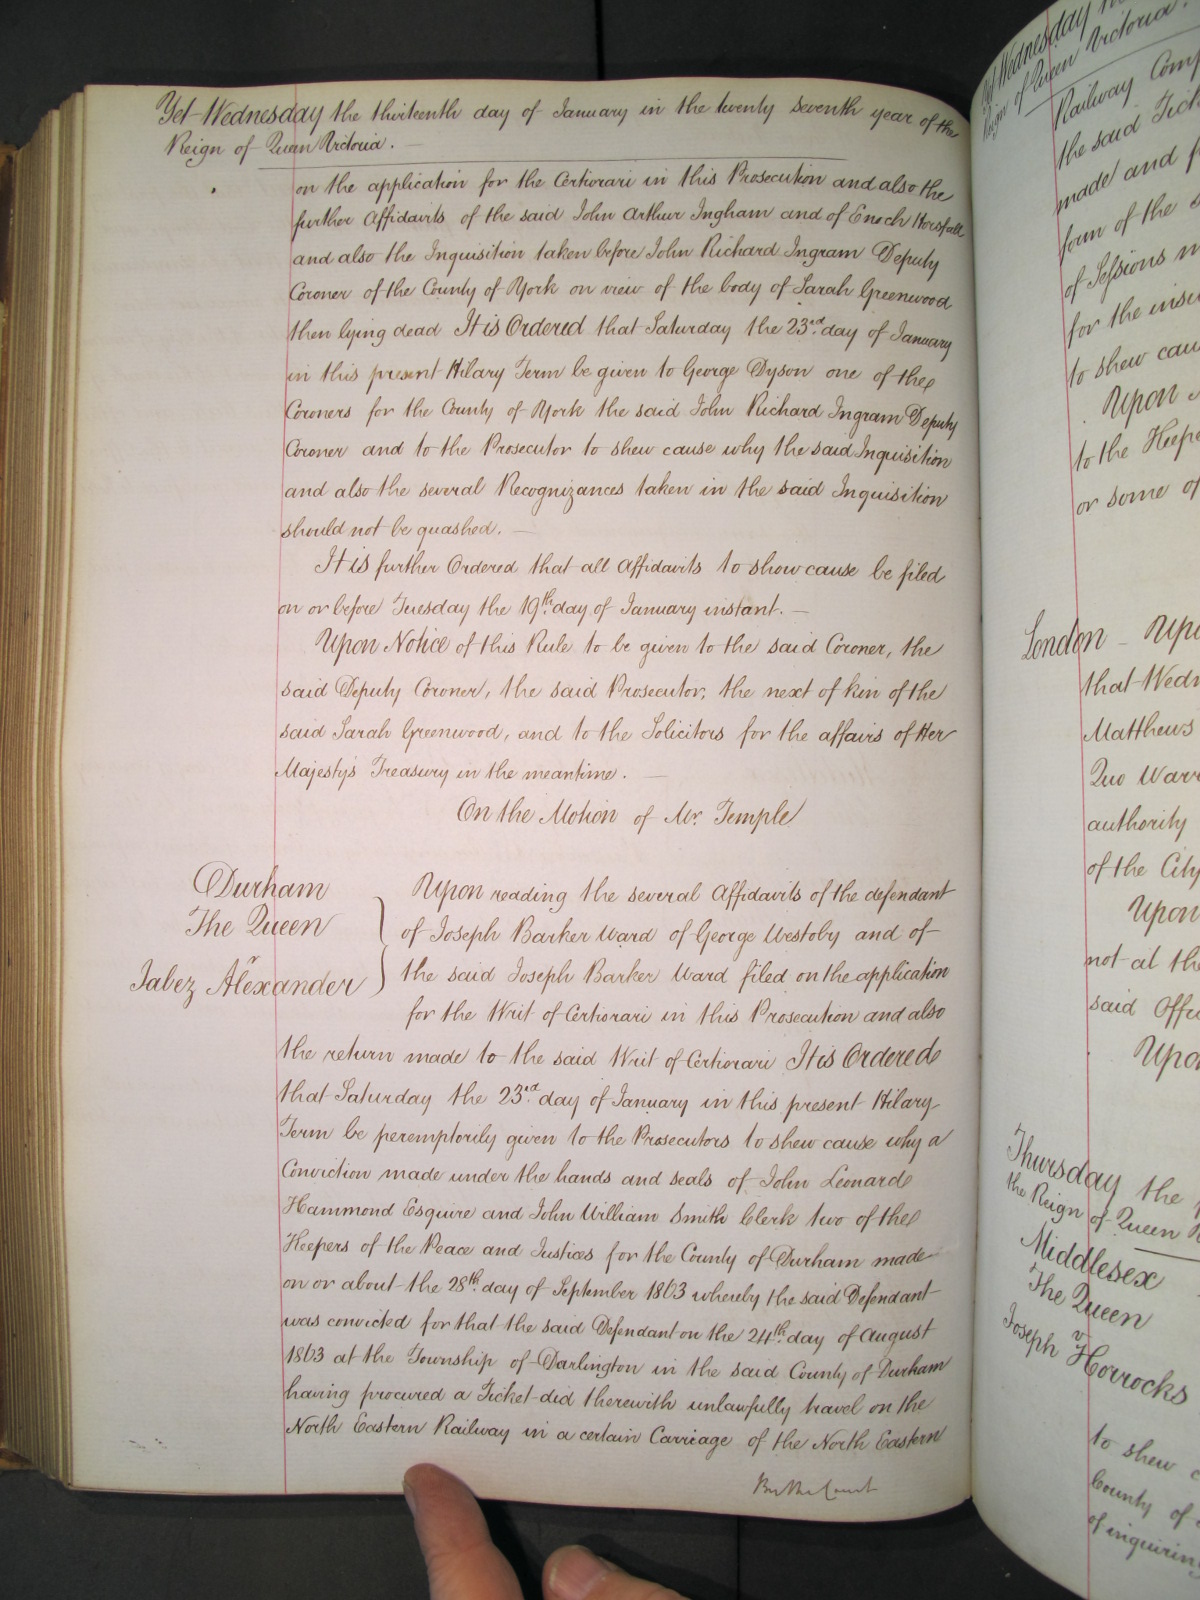 Yet Wednesday the thirteenth day of January in the twenty seventh year of the
Reign of Queen Victoria.
on the application for the Certiorari in this Prosecution and also the
further Affidavits of the said John Arthur Ingham and of Enoch Horsfall
and also the Inquisition taken before John Richard Ingram Deputy
Coroner of the County of York on view of the body of Sarah Greenwood
then lying dead It is Ordered that Saturday the 23rd day of January
in this present Hilary Term be given to George Dyson one of the
Coroners for the County of York the said John Richard Ingram Deputy
Coroner and to the Prosecutor to shew cause why the said Inquisition
and also the several Recognizances taken in the said Inquisition
should not be quashed. —
It is further Ordered that all Affidavits to show cause be filed
on or before Tuesday the 19th day of January instant. —
Upon Notice of this Rule to be given to the said Coroner, the
said Deputy Coroner, the said Prosecutor, the next of kin of the
said Sarah Greenwood, and to the Solicitors for the affairs of Her
Majesty's Treasury in the meantime. —
On the Motion of Mr. Temple
Durham
The Queen
v
Jabez Alexander
Upon reading the several Affidavits of the defendant
of Joseph Barker Ward of George Westoby and of
the said Joseph Barker Ward filed on the application
for the Writ of Certiorari in this Prosecution and also
the return made to the said Writ of Certiorari It is Ordered
that Saturday the 23rd day of January in this present Hilary
Term be peremptorily given to the Prosecutors to shew cause why a
Conviction made under the hands and seals of John Leonard
Hammond Esquire and John William Smith Clerk two of the
Keepers of the Peace and Justices for the County of Durham made
on or about the 28th day of September 1863 whereby the said Defendant
was convicted for that the said Defendant on the 24th day of August
1863 at the Township of Darlington in the said County of Durham
having procured a Ticket did therewith unlawfully travel on the
North Eastern Railway in a certain Carriage of the North Eastern
By the Court
Yet Wednesday
Reign of Queen Victoria.
Railway
the said
made and
form of the
of Sessions
for the
to shew
Upon
to the
or some of
London – Upon
that
Matthews
Quo
authority
of the City
Upon
not at the
said
Upon
Thursday the
the Reign of Queen
Middlesex
The Queen
v
Joseph Horrocks
to shew
County of
of inquiring